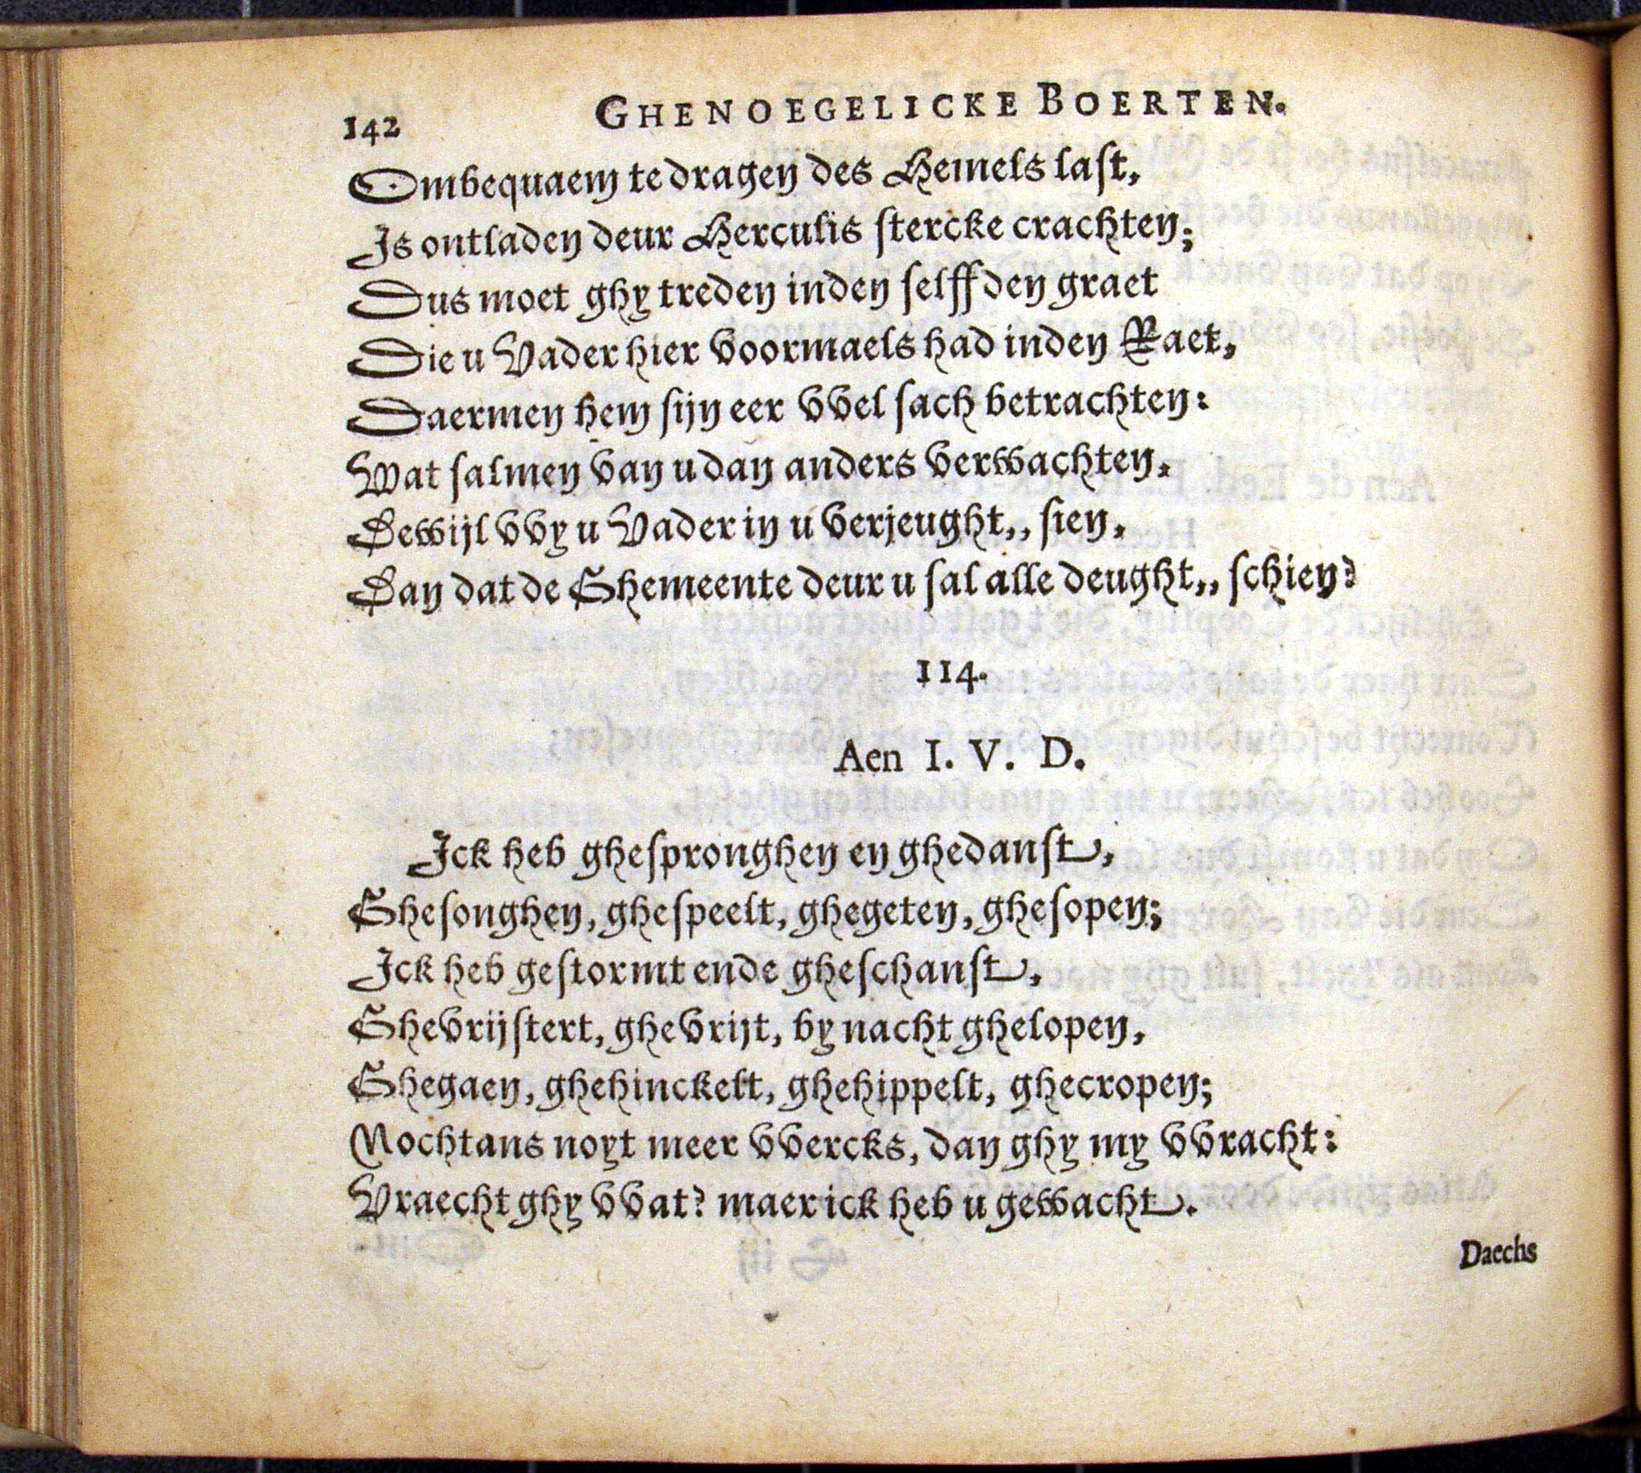 142 GHENOEGELICKE BOERTEN.
Ombequaem te dragen des Hemels last,
Is ontladen deur Herculis stercke crachten;
Dus moet ghy treden inden selffden graet
Die u Vader hier voormaels had inden Raet,
Daermen hem sijn eer vvel sach betrachten:
Wat salmen van u dan anders verwachten,
Dewijl vvy u Vader in u verjeught,, sien,
Dan dat de Ghemeente deur u sal alle deught,, schien?
114.
Aen I. V. D.
Ick heb ghespronghen en ghedanst,
Ghesonghen, ghespeelt, ghegeten, ghesopen;
Ick heb gestormt ende gheschanst,
Ghevrijstert, ghevrijt, by nacht ghelopen,
Ghegaen, ghehinckelt, ghehippelt, ghecropen;
Nochtans noyt meer vvercks, dan ghy my vvracht:
Vraecht ghy vvat? maer ick heb u gewacht.
Daechs